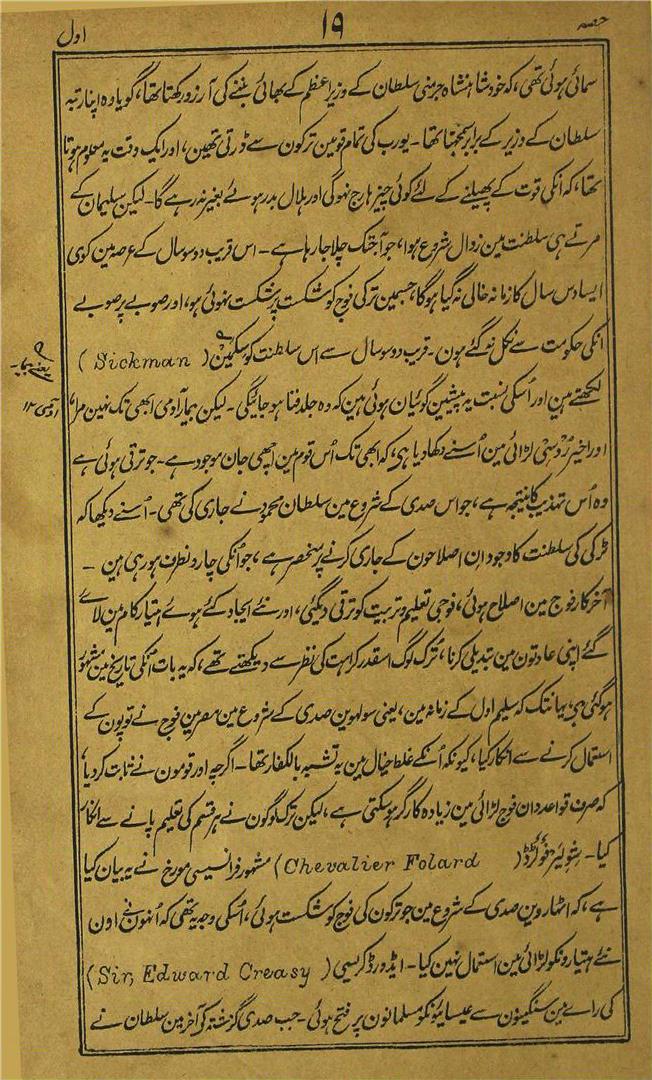 حصہ
۱۹
اول
سمائی ہوئی تھی، کہ خود شاہنشاہ جرمنی سلطان کے وزیر اعظم کے بھائی بننے کی آرزو رکھتا تھا، گویا وہ اپنا رتبہ
سلطان کے وزیر کے برابر سمجھتا تھا۔ یورپ کی تمام قومین ترکون سے ڈرتی تھین، اور ایک وقت یہ معلوم ہوتا
تھا، کہ انکی قوت کے پھیلنے کے لئے کوئی چیز ہارج نہوگی اور ہلال بدر ہوئے بغیر نہ رہے گا۔ لیکن سلیمان کے
مرتے ہی سلطنت مین زوال شروع ہوا، جو آجتک چلا جا رہا ہے۔ اس قریب دو سو سال کے عرصہ مین کوئی
ایسا دس سال کا زمانہ خالی نہ گیا ہوگا، جسمین ترکی فوج کو شکست پر شکست نہوئی ہو، اور صوبے پر صوبے
انکی حکومت سے نکل نہ گئے ہون۔ قریب دو سو سال سے اس سلطنت کو سکمین (Sickman)
یعنے بیمار
آدمی ۱۲
لکھتے ہین اور اُسکی نسبت یہ پیشین گوئیان ہوئی ہین کہ وہ جلد فنا ہو جائیگی۔ لیکن بیمار آدمی ابھی تک نہین مرا،
اور اخیر رُوسی لڑائی مین اُسنے دکھا دیا ہی، کہ ابھی تک اُس قوم مین اچھی جان موجود ہے۔ جو ترقی ہوئی ہے
وہ اُس تہذیب کا نتیجہ ہے، جو اس صدی کے شروع مین سلطان محمود نے جاری کی تھی۔ اُسنے دیکھا کہ
ٹرکی کی سلطنت کا وجود ان اصلاحون کے جاری کرنے پر منحصر ہے، جو اُنکی چارونطرف ہو رہی ہین۔
آخر کار فوج مین اصلاح ہوئی، فوجی تعلیم و تربیت کو ترقی دیگئی، اور نئے ایجاد کئے ہوئے ہتیار کام مین لائے
گئے اپنی عادتون مین تبدیلی کرنا، ترک لوگ اسقدر کراہت کی نظر سے دیکھتے تھے، کہ یہ بات اُنکی تاریخ مین مشہور
ہوگئی ہی، یہانتک کہ سلیم اول کے زمانہ مین، یعنی سولہوین صدی کے شروع مین مصر مین فوج نے توپون کے
استعمال کرنے سے انکار کیا، کیونکہ اُنکے غلط خیال مین یہ تشبہ بالکفار تھا۔ اگرچہ اور قومون نے ثابت کر دیا،
کہ صرف قواعد دان فوج لڑائی مین زیادہ کارگر ہو سکتی ہے، لیکن ترک لوگون نے ہر قسم کی تعلیم پانے سے انکار
کیا۔ شولیر فولرڈ (Chevalier Folard) مشہور فرانسیسی مورخ نے یہ بیان کیا
ہے، کہ اٹھاروین صدی کے شروع مین جو ترکون کی فوج کو شکست ہوئی، اُسکی وجہ یہ تھی کہ اُنہون نے اون
نئے ہتیارونکو لڑائی مین استعمال نہین کیا۔ ایڈورڈ کریسی (Sir, Edward Creasy)
کی رائے مین سنگینون سے عیسائیونکو مسلمانون پر فتح ہوئی۔ جب صدی گزشتہ کی آخر مین سلطان نے